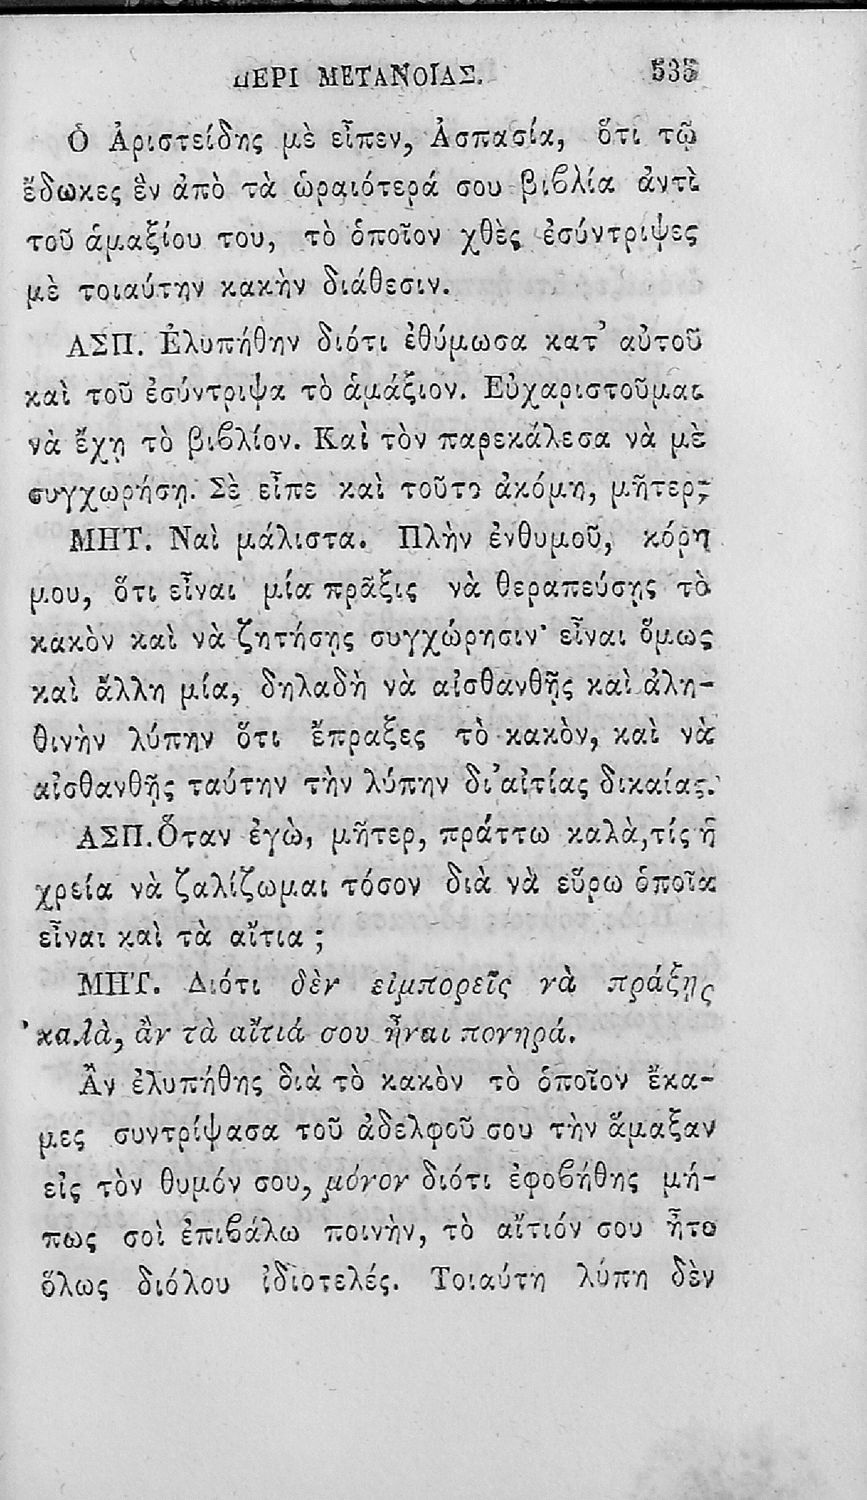 ΠΕΡΙ ΜΕΤΑΝΟΙΑΣ. 535
Ὁ Ἀριστείδης μὲ εἶπεν, Ἀσπασία, ὅτι τῷ
ἔδωκες ἓν ἀπὸ τὰ ὡραιότερά σου βιβλία ἀντὶ
τοῦ ἁμαξίου του, τὸ ὁποῖον χθὲς ἐσύντριψες
μὲ τοιαύτην κακὴν διάθεσιν.
ΑΣΠ. Ἐλυπήθην διότι ἐθύμωσα κατ' αὐτοῦ
καὶ τοῦ ἐσύντριψα τὸ ἁμάξιον. Εὐχαριστοῦμαι
νὰ ἔχῃ τὸ βιβλίον. Καὶ τὸν παρεκάλεσα νὰ μὲ
συγχωρήσῃ. Σὲ εἶπε καὶ τοῦτο ἀκόμη, μῆτερ;
ΜΗΤ. Ναὶ μάλιστα. Πλὴν ἐνθυμοῦ, κόρη
μου, ὅτι εἶναι μία πρᾶξις νὰ θεραπεύσῃς τὸ
κακὸν καὶ νὰ ζητήσῃς συγχώρησιν· εἶναι ὅμως
καὶ ἄλλη μία, δηλαδὴ νὰ αἰσθανθῇς καὶ ἀλη-
θινὴν λύπην ὅτι ἔπραξες τὸ κακὸν, καὶ νὰ
αἰσθανθῇς ταύτην τὴν λύπην δι' αἰτίας δικαίας.
ΑΣΠ. Ὅταν ἐγὼ, μῆτερ, πράττω καλὰ, τίς ἡ
χρεία νὰ ζαλίζωμαι τόσον διὰ νὰ εὕρω ὁποῖα
εἶναι καὶ τὰ αἴτια ;
ΜΗΤ. Διότι δὲν εἰμπορεῖς νὰ πράξῃς
καλὰ, ἂν τὰ αἴτιά σου ἦναι πονηρά.
Ἂν ἐλυπήθης διὰ τὸ κακὸν τὸ ὁποῖον ἔκα-
μες συντρίψασα τοῦ ἀδελφοῦ σου τὴν ἅμαξαν
εἰς τὸν θυμόν σου, μόνον διότι ἐφοβήθης μή-
πως σοὶ ἐπιβάλω ποινὴν, τὸ αἴτιόν σου ἦτο
ὅλως διόλου ἰδιοτελές. Τοιαύτη λύπη δὲν